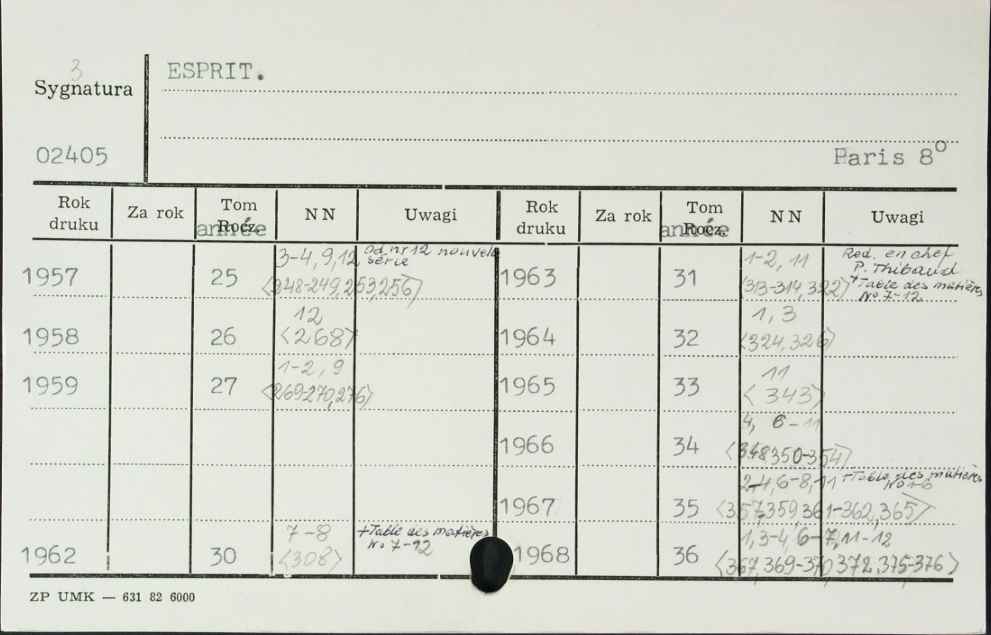 3
Sygnatura
ESPRIT.
02405
Paris 8°
Rok druku
Za rok
Tom Rocz. année
NN
Uwagi
Rok druku
Za rok
Tom Rocz. année
NN
Uwagi
1957 25 3-4, 9, 12 Od nr 12 nouvele série
<248-249, 253, 256>
1958 26 12
<268>
1959 27 1-2, 9
<269-270, 276>
1962 30 7-8 +Table des matières
<308> No 7-12
1963 31 1-2, 11 Red. en chef
P. Thibaud
<313-314, 322> +Table des matières
No 7-12
1964 32 1, 3
<324, 326>
1965 33 11
<343>
1966 34 4, 6-11
<348 350-354>
1967 35 2-4, 6-8, 11 +Table des matières
No 1-6
<357, 359, 361-362, 365>
1968 36 1, 3-4, 6-7, 11-12
<367, 369-370 372, 375-376>
ZP UMK — 631 82 6000